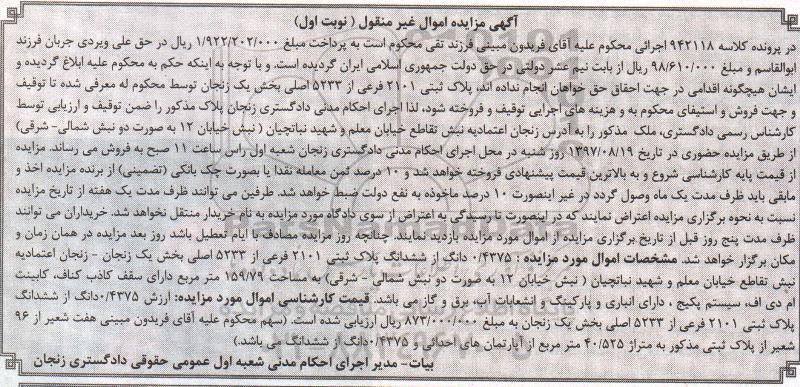 آگهی مزایده اموال غیر منقول ( نوبت اول)
در پرونده کلاسه ۹۴۲۱۱۸ اجرائی محکوم علیه آقای فریدون مبینی فرزند تقی محکوم است به پرداخت مبلغ ۱/۹۲۲/۲۰۲/۰۰۰ ریال در حق علی ویردی جربان فرزند
ابوالقاسم و مبلغ ۹۸/۶۱۰/۰۰۰ ریال از بابت نیم عشر دولتی در حق دولت جمهوری اسلامی ایران گردیده است. و با توجه به اینکه حکم به محکوم علیه ابلاغ گردیده و
ایشان هیچگونه اقدامی در جهت احقاق حق خواهان انجام نداده اند، پلاک ثبتی ۲۱۰۱ فرعی از ۵۲۳۳ اصلی بخش یک زنجان توسط محکوم له معرفی شده تا توقیف
و جهت فروش و استیفای محکوم به و هزینه های اجرایی توقیف و فروخته شود، لذا اجرای احکام مدنی دادگستری زنجان پلاک مذکور را ضمن توقیف و ارزیابی توسط
کارشناس رسمی دادگستری، ملک مذکور را به آدرس زنجان اعتمادیه نبش تقاطع خیابان معلم و شهید نباتچیان ( نبش خیابان ۱۲ به صورت دو نبش شمالی- شرقی)
از طریق مزایده حضوری در تاریخ ۱۳۹۷/۰۸/۱۹ روز شنبه در محل اجرای احکام مدنی دادگستری زنجان شعبه اول راس ساعت ۱۱ صبح به فروش می رساند. مزایده
از قیمت پایه کارشناسی شروع و به بالاترین قیمت پیشنهادی فروخته خواهد شد و ۱۰ درصد ثمن معامله نقدا یا بصورت چک بانکی (تضمینی) از برنده مزایده اخذ و
مابقی باید ظرف مدت یک ماه وصول گردد در غیر اینصورت ۱۰ درصد ماخوذه به نفع دولت ضبط خواهد شد. طرفین می توانند ظرف مدت یک هفته از تاریخ مزایده
نسبت به نحوه برگزاری مزایده اعتراض نمایند که در اینصورت تا رسیدگی به اعتراض از سوی دادگاه مورد مزایده به نام خریدار منتقل نخواهد شد. خریداران می توانند
ظرف مدت پنج روز قبل از تاریخ برگزاری مزایده از اموال مورد مزایده بازدید نمایند. چنانچه روز مزایده مصادف با ایام تعطیل باشد روز بعد مزایده در همان زمان و
مکان برگزار خواهد شد. مشخصات اموال مورد مزایده : ۰/۴۳۷۵ دانگ از ششدانگ پلاک ثبتی ۲۱۰۱ فرعی از ۵۲۳۳ اصلی بخش یک زنجان - زنجان اعتمادیه
نبش تقاطع خیابان معلم و شهید نباتچیان ( نبش خیابان ۱۲ به صورت دو نبش شمالی - شرقی) به مساحت ۱۵۹/۷۹ متر مربع دارای سقف کاذب کناف، کابینت
ام دی اف، سیستم پکیج ، دارای انباری و پارکینگ و انشعابات آب، برق و گاز می باشد. قیمت کارشناسی اموال مورد مزایده: ارزش ۰/۴۳۷۵دانگ از ششدانگ
پلاک ثبتی ۲۱۰۱ فرعی از ۵۲۳۳ اصلی بخش یک زنجان به مبلغ ۸۷۳/۰۰۰/۰۰۰ ریال ارزیابی شده است. (سهم محکوم علیه آقای فریدون مبینی هفت شعیر از ۹۶
شعیر از پلاک ثبتی مذکور به متراژ ۴۰/۵۲۵ متر مربع از آپارتمان های احداثی و ۰/۴۳۷۵دانگ از ششدانگ می باشد.)
بیات- مدیر اجرای احکام مدنی شعبه اول عمومی حقوقی دادگستری زنجان